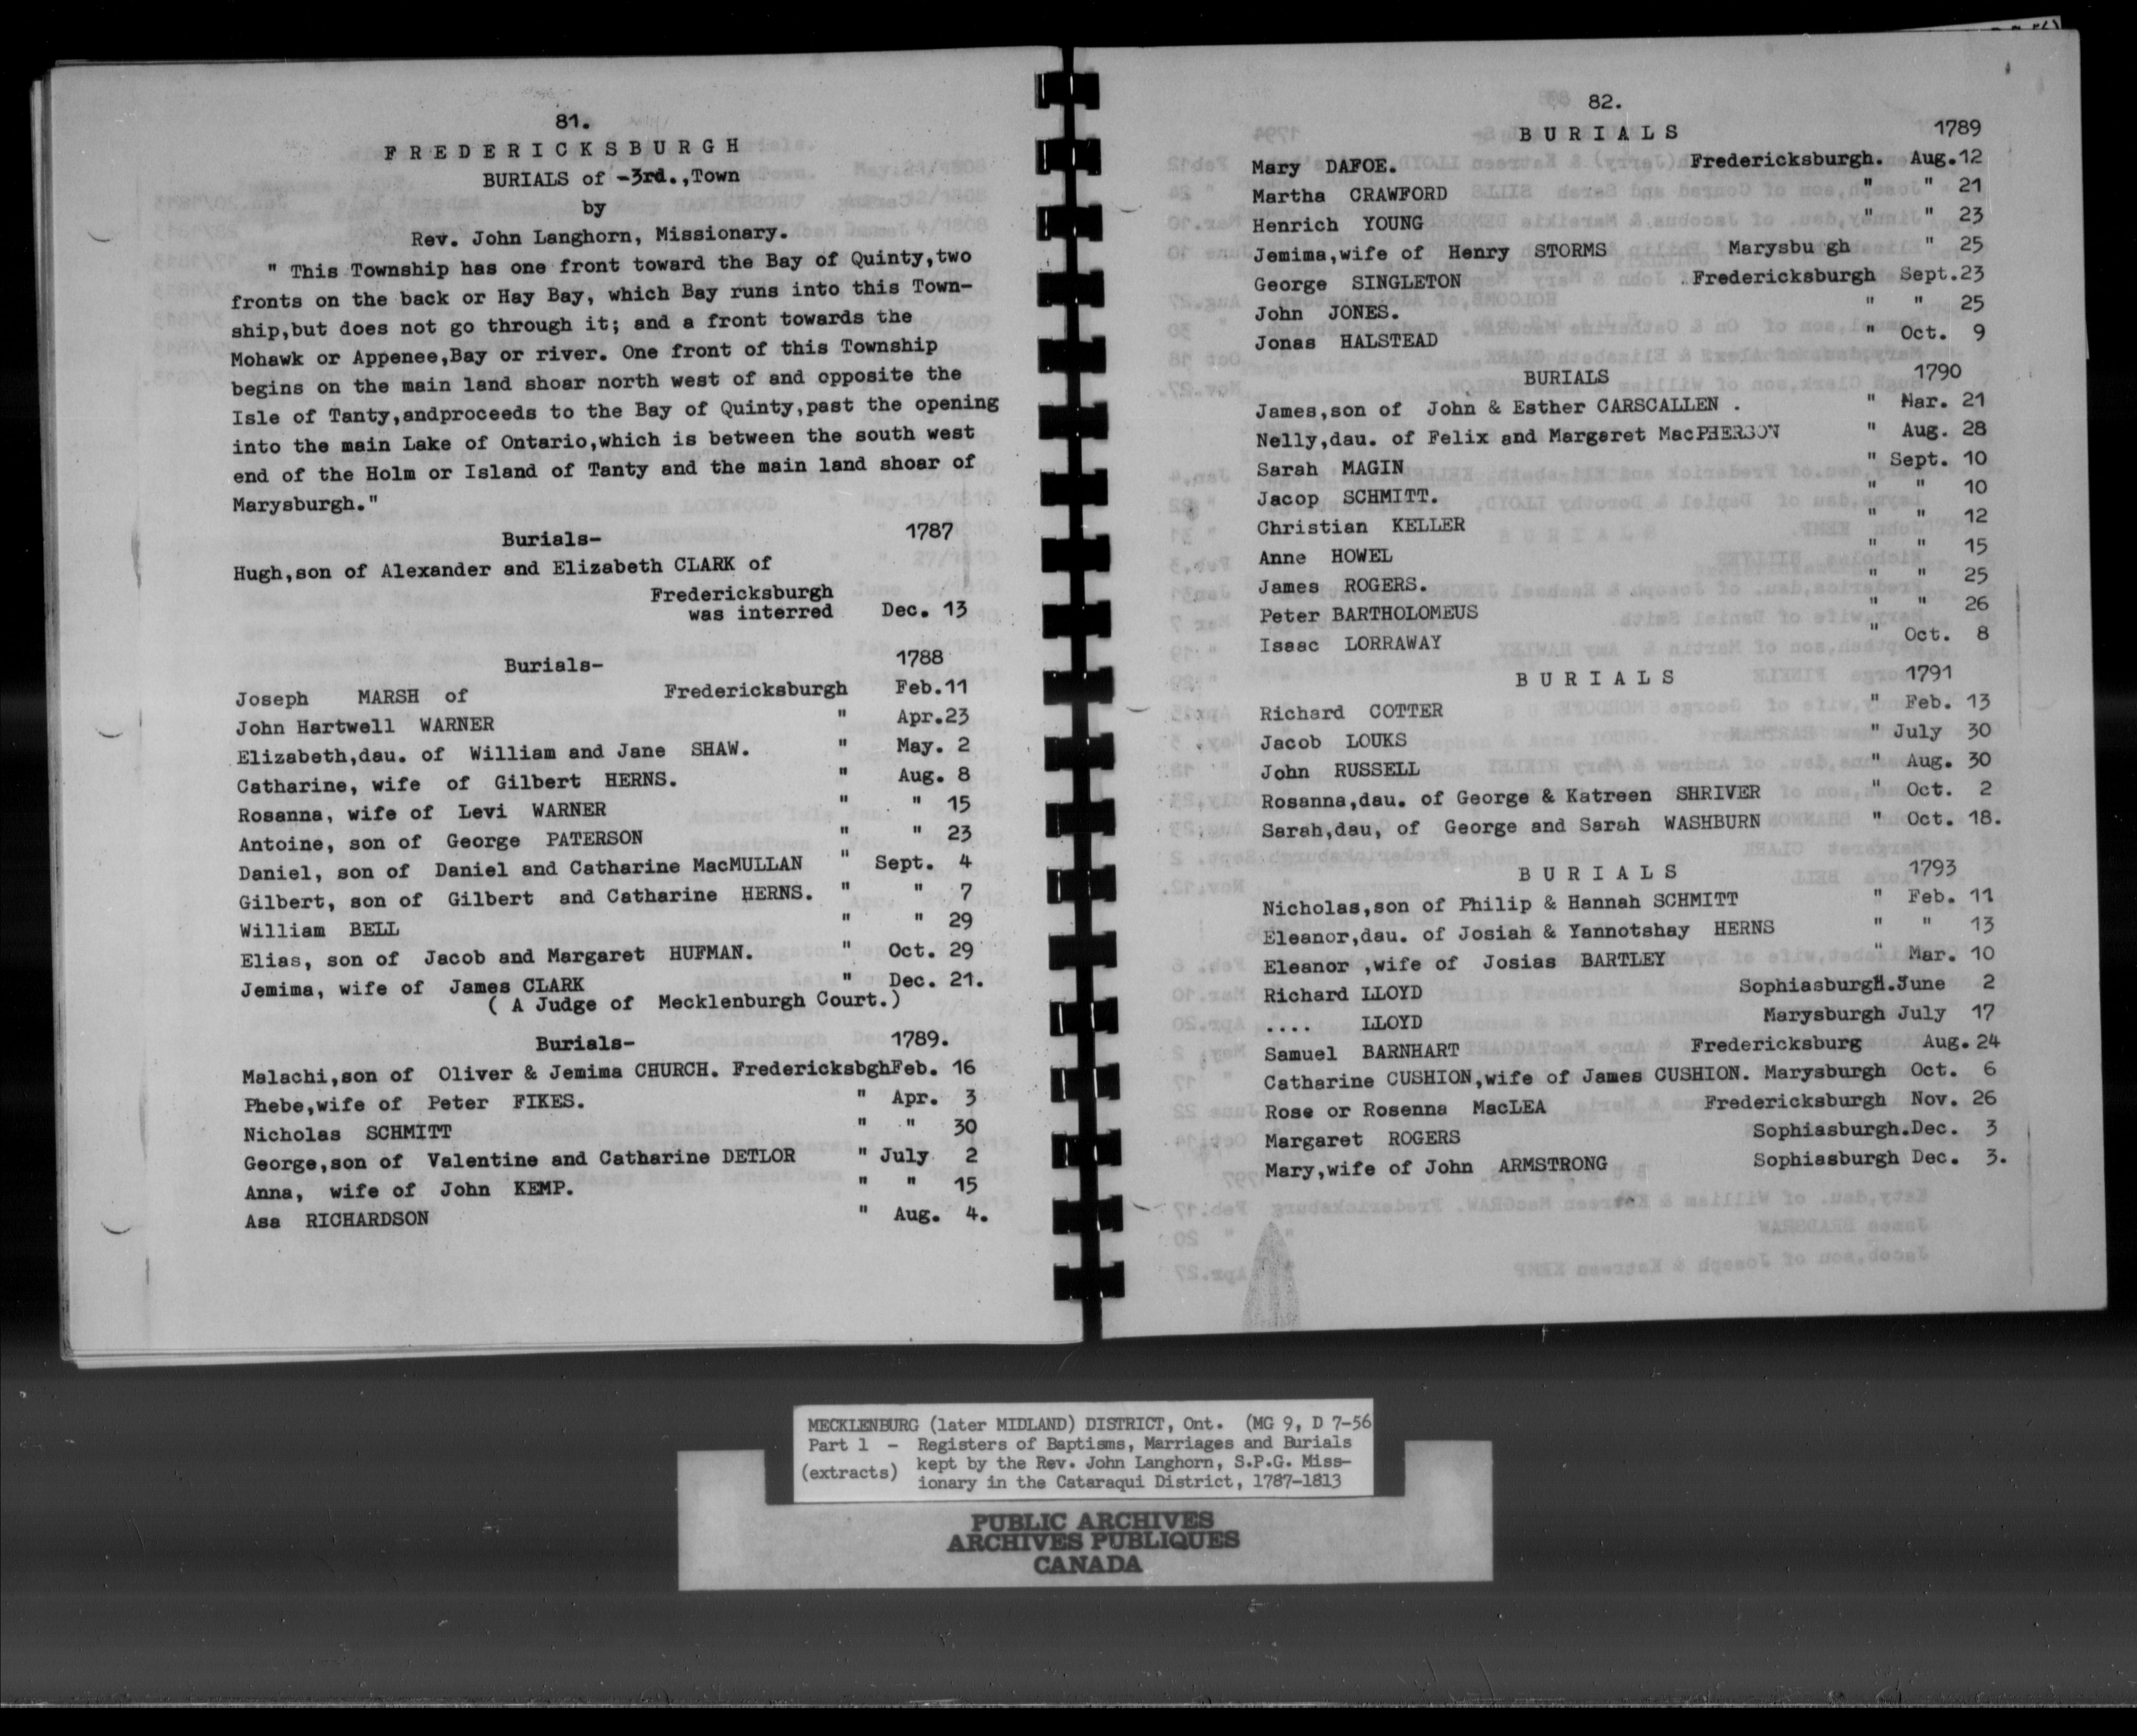 81.
F R E D E R I C K S B U R G H
BURIALS of -3rd.,Town
by
Rev. John Langhorn, Missionary.
" This Township has one front toward the Bay of Quinty,two
fronts on the back or Hay Bay, which Bay runs into this Town-
ship,but does not go through it; and a front towards the
Mohawk or Appenee,Bay or river. One front of this Township
begins on the main land shoar north west of and opposite the
Isle of Tanty,andproceeds to the Bay of Quinty,past the opening
into the main Lake of Ontario,which is between the south west
end of the Holm or Island of Tanty and the main land shoar of
Marysburgh."
Burials- 1787
Hugh,son of Alexander and Elizabeth CLARK of
Fredericksburgh
was interred Dec. 13
Burials- 1788
Joseph MARSH of Fredericksburgh Feb.11
John Hartwell WARNER " Apr.23
Elizabeth,dau. of William and Jane SHAW. " May. 2
Catharine, wife of Gilbert HERNS. " Aug. 8
Rosanna, wife of Levi WARNER " " 15
Antoine, son of George PATERSON " " 23
Daniel, son of Daniel and Catharine MacMULLAN " Sept. 4
Gilbert, son of Gilbert and Catharine HERNS. " " 7
William BELL " " 29
Elias, son of Jacob and Margaret HUFMAN. " Oct. 29
Jemima, wife of James CLARK " Dec. 21.
( A Judge of Mecklenburgh Court.)
Burials- 1789.
Malachi,son of Oliver & Jemima CHURCH. FredericksbghFeb. 16
Phebe,wife of Peter FIKES. " Apr. 3
Nicholas SCHMITT " " 30
George,son of Valentine and Catharine DETLOR " July 2
Anna, wife of John KEMP. " " 15
Asa RICHARDSON " Aug. 4.
82.
B U R I A L S 1789
Mary DAFOE. Fredericksburgh. Aug.12
Martha CRAWFORD " " 21
Henrich YOUNG " " 23
Jemima,wife of Henry STORMS Marysbu gh " 25
George SINGLETON Fredericksburgh Sept.23
John JONES. " " 25
Jonas HALSTEAD " Oct. 9
BURIALS 1790
James,son of John & Esther CARSCALLEN . " Mar. 21
Nelly,dau. of Felix and Margaret MacPHERSON " Aug. 28
Sarah MAGIN " Sept. 10
Jacop SCHMITT. " " 10
Christian KELLER " " 12
Anne HOWEL " " 15
James ROGERS. " " 25
Peter BARTHOLOMEUS " " 26
Isaac LORRAWAY " Oct. 8
B U R I A L S 1791
Richard COTTER " Feb. 13
Jacob LOUKS " July 30
John RUSSELL " Aug. 30
Rosanna,dau. of George & Katreen SHRIVER " Oct. 2
Sarah,dau, of George and Sarah WASHBURN " Oct. 18.
B U R I A L S 1793
Nicholas,son of Philip & Hannah SCHMITT " Feb. 11
Eleanor,dau. of Josiah & Yannotshay HERNS " " 13
Eleanor ,wife of Josias BARTLEY " Mar. 10
Richard LLOYD Sophiasburgh.June 2
.... LLOYD Marysburgh July 17
Samuel BARNHART Fredericksburg Aug. 24
Catharine CUSHION,wife of James CUSHION. Marysburgh Oct. 6
Rose or Rosenna MacLEA Fredericksburgh Nov. 26
Margaret ROGERS Sophiasburgh.Dec. 3
Mary,wife of John ARMSTRONG Sophiasburgh Dec. 3.
MECKLENBURG (later MIDLAND) DISTRICT, Ont. (MG 9, D 7-56
Part 1 - Registers of Baptisms, Marriages and Burials
(extracts) kept by the Rev. John Langhorn, S.P.G. Miss-
ionary in the Cataraqui District, 1787-1813
PUBLIC ARCHIVES
ARCHIVES PUBLIQUES
CANADA